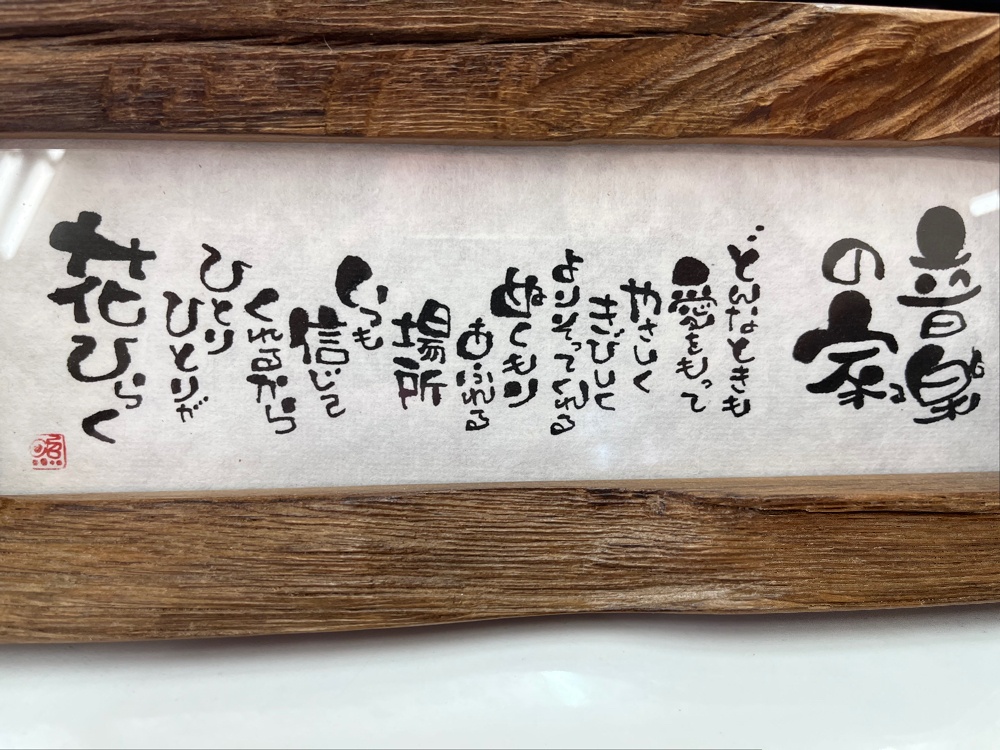 音楽
の家
どんなときも
愛をもって
やさしく
きびしく
よりそってくれる
ぬくもり
あふれる
場所
いつも
信じて
くれるから
ひとり
ひとりが
花ひらく